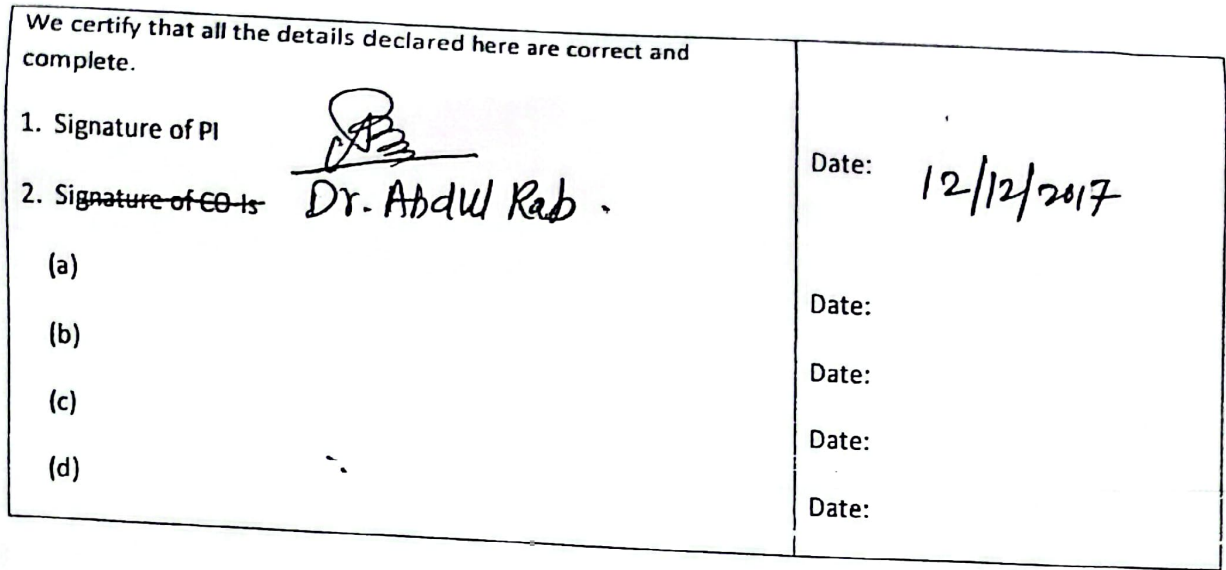 We certify that all the details declared here are correct and
complete.
1. Signature of PI
Date: 12/12/2017
2. Signature of CO-Is Dr. Abdul Rab.
(a)
Date:
(b)
Date:
(c)
Date:
(d)
Date: